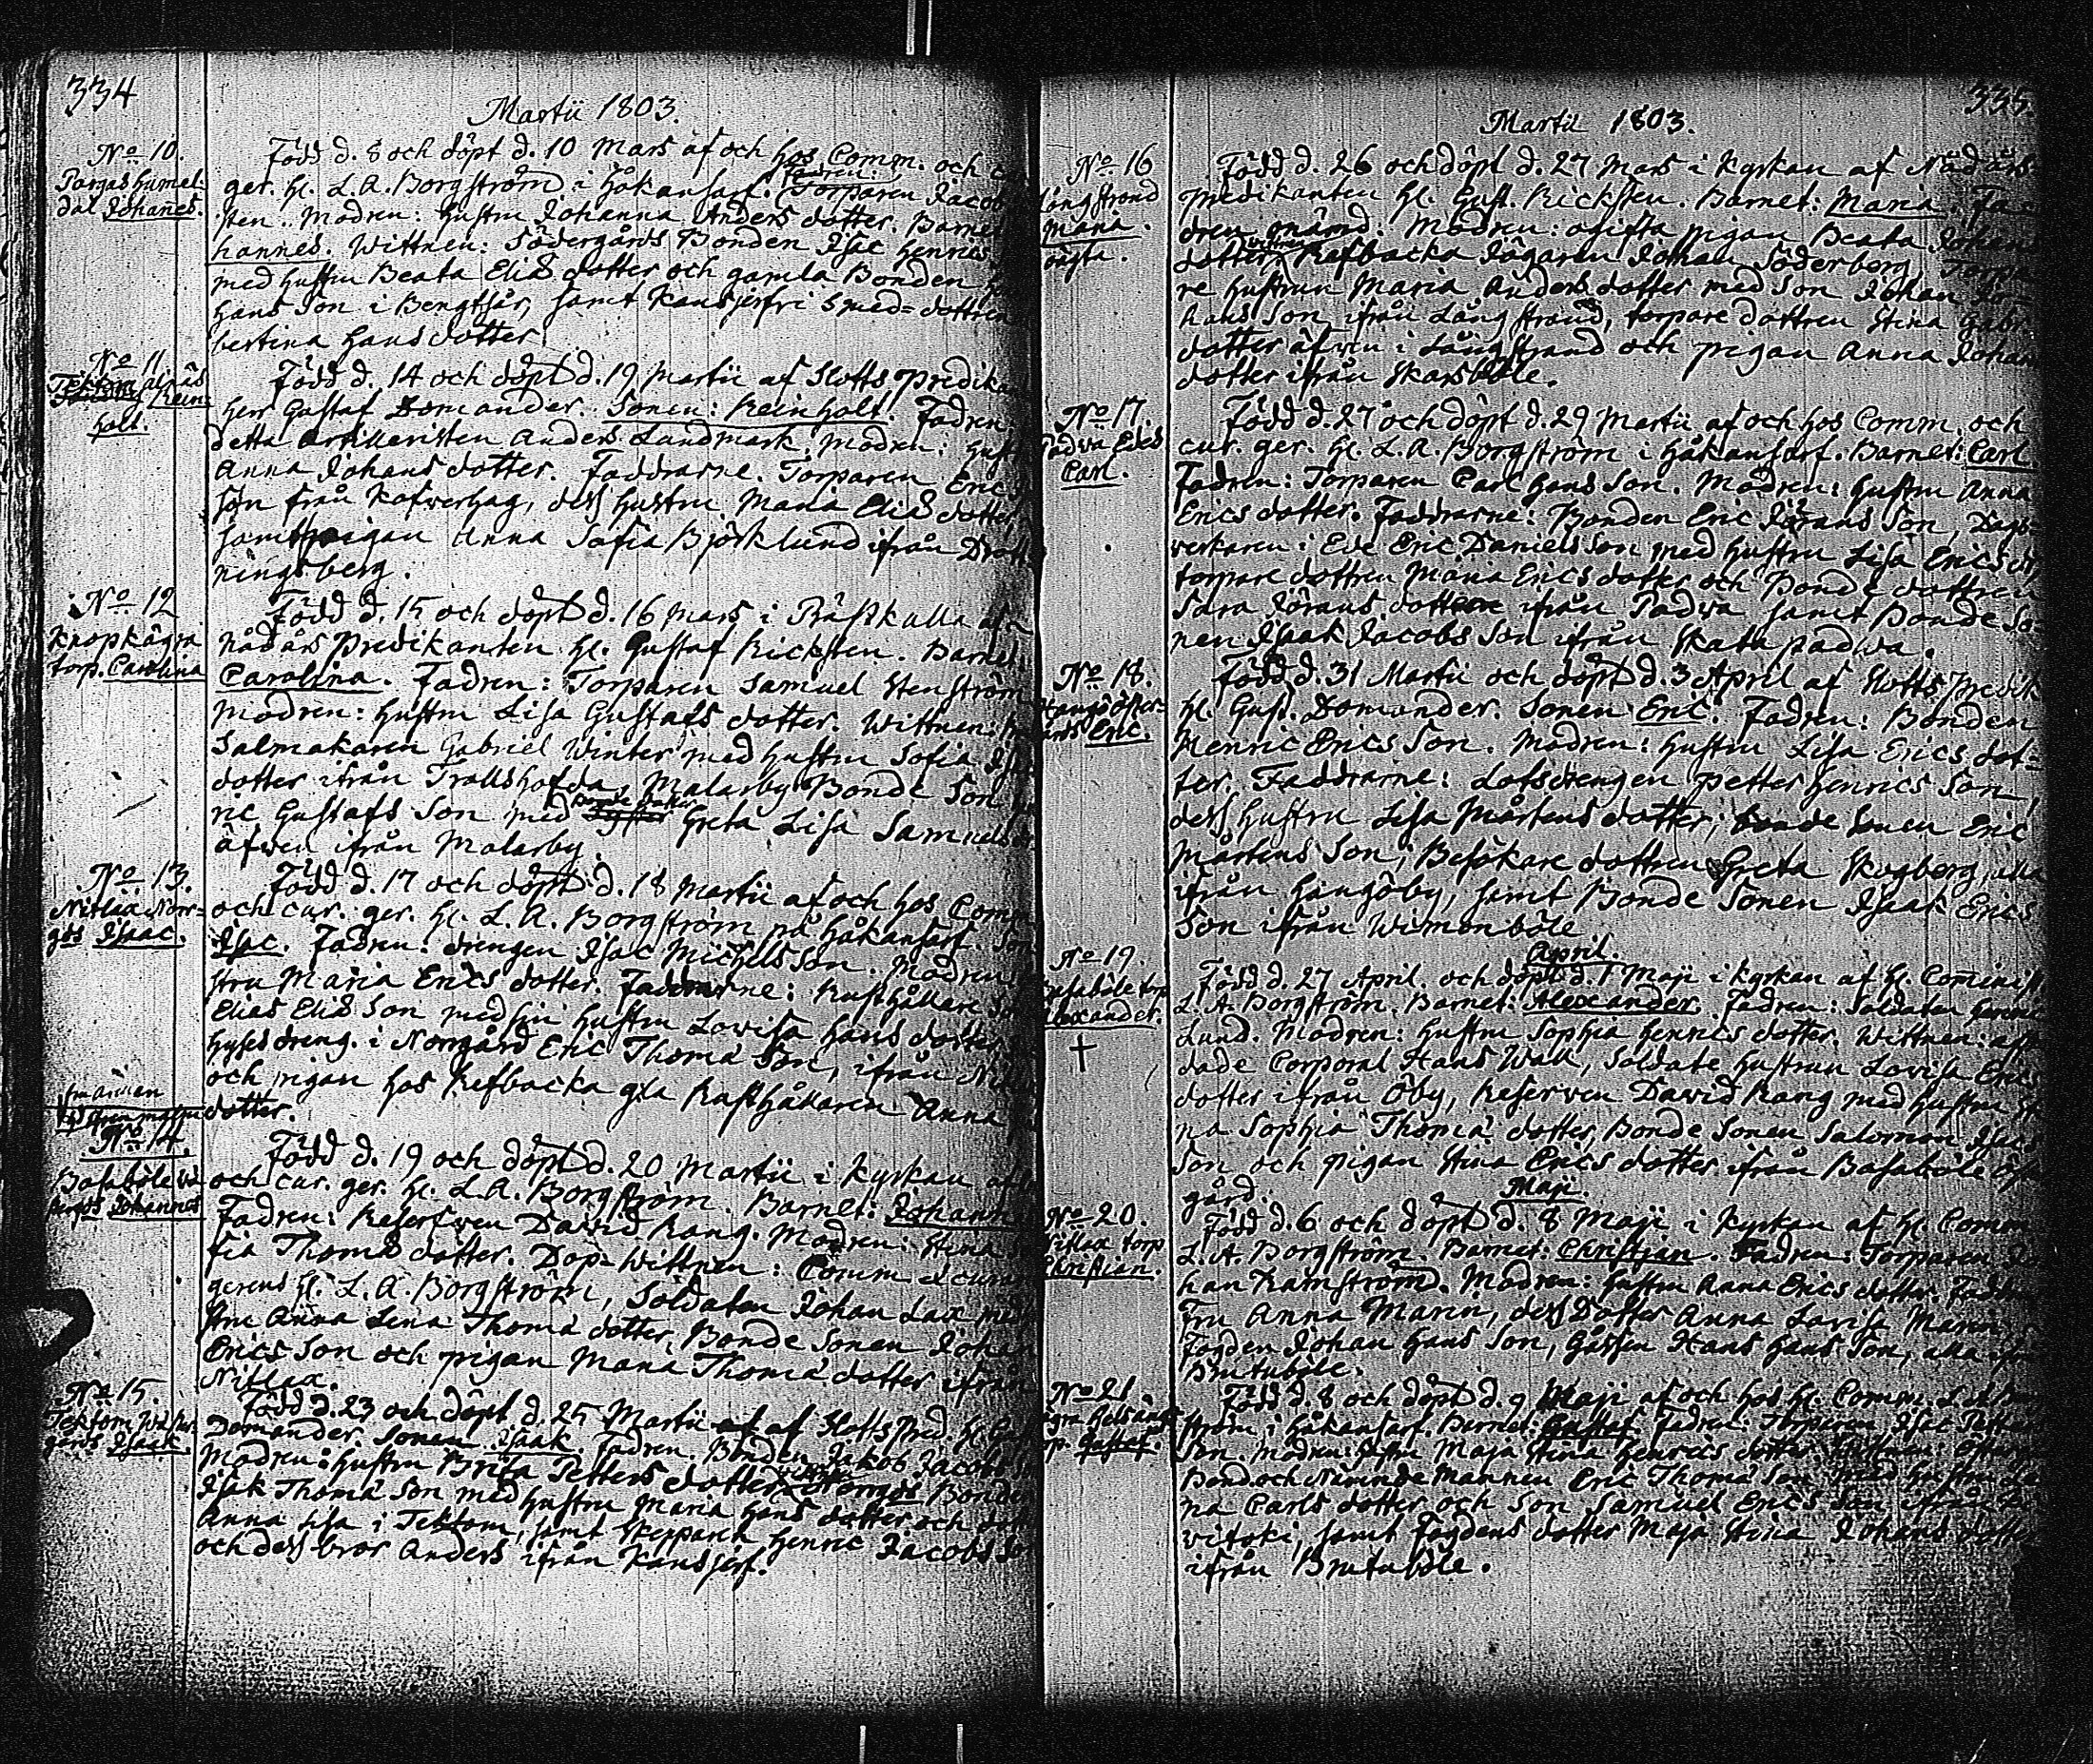 334
Martii 1803.
No 10.
Pargas humel-
dal Johanes.
Född d. 8 och döpt d. 10 Mars af och hos Comm. och
ger. hl. L. A. Borgström i håkansarf. Fadren: Torparen Jacob
sten. Modren: hustru Johanna Anders dotter. Barnet
hannes. Wittnen: Södergårds Bonden Isac Henrics
med hustru Beata Elias dotter och gamla Bonden
hans Son i Bengtsår, samt Kansjerfvi Smed-dottren
bertina hans dotter.
No 11
Tektom
Rein-
holt.
Född d. 14 och döpt d. 19 Martii af Slotts Predika
herr Gustaf Domander. Sonen: Reinholt. Fadren:
detta Artilleristen Anders Lundmark, Modren: hust
Anna Johans dotter. Faddrarne. Torparen Erics
son från Kafverhag, dess hustru Maria Elias dotter,
samt pigan Anna Sofia Björklund ifrån Drott
ningsberg.
No 12
Knopkägra
torp. Carolina
Född d. 15 och döpt d. 16 Mars i Präskulla af
nådårs Predikanten hl. Gustaf Ricksten. Barnet
Carolina. Fadren: Torparen Samuel Stenström
Modren: hustru Lisa Gustafs dotter. Wittnen:
Salmakaren Gabriel Winter med hustru Sofia
dotter ifrån Trallshofda, Malarby Bonde Son
ric Gustafs Son med Greta Lisa Samuels
äfven ifrån Malarby.
No 13.
Nitlax Norr-
gds Isaac.
Född d. 17 och döpt d. 18 Martii af och hos Com
och cur. ger. hl. L. A. Borgström på håkansarf. Son
Isac. Fadren: drengen Isac Michels Son. Modren
stru Maria Erics dotter. Faddrarne: Rusthållare
Elias Elias Son med sin hustru Lovisa hans dotter
hyses dreng. i Norrgård Eric Thoma Son, ifrån
och pigan hos Refbacka gla Rusthållaren Anna
dotter.
No 14.
Basaböle
Johannes
Född d. 19 och döpt d. 20 Martii i Kyrkan af
och cur. ger. hl. L. A. Borgström. Barnet: Johann
Fadren: Reserfven David Rang. Modren: Stina
fia Thoma dotter. Döp-Wittnen: Comm et cura
gerens hl. L. A. Borgström, Soldaten Johan Lax med
stru Anna Lena Thoma dotter, Bonde Sonen Johan
Erics Son och pigan Maria Thoma dotter ifrån
Nitlax.
No 15.
Tektom
gårds Isaak.
Född d. 23 och döpt d. 25 Martii af Slotts Pred. hl.
Domander. Sonen Isaak. Fadren. Bonden Jakob Jacobs
Modren: hustru Brita Petters dotter. Bonden
Isak Thoma Son med hustru Maria hans dotter och
Anna Lisa i Tektom, samt Skepparen Henric Jacobs Son
och dess bror Anders ifrån Kansjerf.
335
Martii 1803.
No 16
Långstrand
Maria.
oägta.
Född d. 26 och döpt d. 27 Mars i Kyrkan af Nådårs
Predikanten hl. Gust. Ricksten. Barnet: Maria. Fa-
dren onämd. Modren: ogifta pigan Beata Johans
dotter. Wittnen Refbacka Jägaren Johan Söderberg, Torpa
re hustrun Maria Anders dotter med Son Johan Jo-
hans Son ifrån Långstrand, torpare dottren Stina Gabr
dotter äfven i Långstrand och pigan Anna Johan
dotter ifrån Skarsböle.
No 17
Padva Edes
Carl.
Född d. 27 och döpt d. 29 Martii af och hos Comm. och
cur. ger. hl. L. A. Borgström i håkansarf. Barnet: Carl
Fadren: Torparen Carl hans Son. Modren: hustru Anna
Erics dotter. Faddrarne: Bonden Eric Jörans Son, Dags-
verkaren i Ede Eric Daniels Son med hustru Lisa Erics dr
torpare dottren Maria Erics dotter och Bonde dottren
Sara Jörans dotter ifrån Padva samt Bonde So-
nen Isaak Jacobs Son ifrån Skata padva.
No 18.
Hangööster-
gårds Eric.
Född d. 31 Martii och döpt d. 3 April af Slotts Predik
hl. Gust. Domander. Sonen Eric. Fadren: Bonden
Henric Erics Son. Modren: hustru Lisa Erics dot-
ter. Faddrarne: Lotsdrengen Petter Henrics Son,
dess hustru Lisa Mårtens dotter, bonde Sonen Eric
Mårtens Son, Besökare dottren Greta Skogberg, alla
ifrån hangöby, samt Bonde Sonen Isaak Erics
Son ifrån Wimonböle
April.
No 19.
Basaböle torp
Alexander.
†
Född d. 27 April. och döpt d. 1 Maji i Kyrkan af hl. Cominist
L. A. Borgström. Barnet: Alexander. Fadren: Soldaten
Lund. Modren: hustru Sophia Henrics dotter. Wittnen: afske
dade Corporal Hans Wall, Soldate hustrun Lovisa Erics
dotter ifrån Öby, Reserven David Rang med hustru St
na Sophia Thoma dotter, Bonde Sonen Salomon Isacs
Son och pigan Stina Erics dotter ifrån Basaböle
gård.
Maji.
No 20.
Nitlax torp
Christian.
Född d. 6 och döpt d. 8 Maji i Kyrkan af hl Comm
L. A. Borgström. Barnet: Christian. Fadren: Torparen Jo
han Ramström. Modren: hustru Anna Erics dotter. Fadd
Fru Anna Marin, dess Dotter Anna Lovisa Marin
Fogden Johan hans Son, Gåssen Hans hans Son, alla ifrån
Brutuböle.
No 21.
Gustaf.
Född d. 8 och döpt d. 9 Maji af och hos hl. Comm. L. A. Borg
ström i håkansarf. Barnet: Gustaf. Fadren: Torparen Isac
Son. Modren: hustru Maja Stina Henrics dotter. Wittnen:
Bond och Nämnde Mannen Eric Thoma Son med hustru
na Carls dotter och Son Samuel Erics Son ifrån
vitski, samt Fogdens dotter Maja Stina Johans dotter
ifrån Brutuböle.